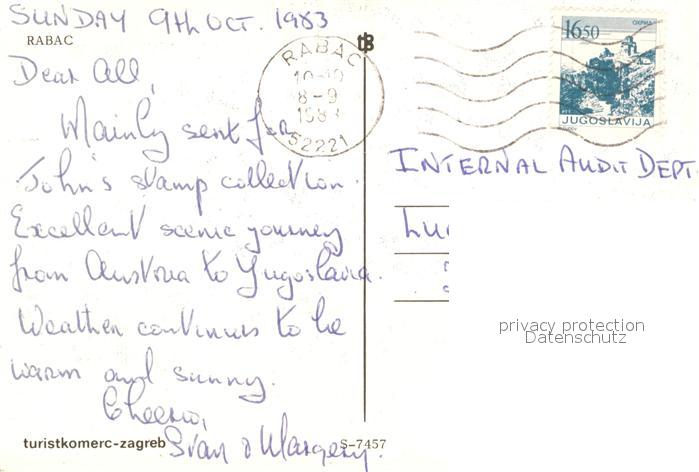 SUNDAY 9th OCT. 1983
RABAC
Dear All,
Mainly sent for
John's stamp collection.
Excellent scenic journey
from Austria to Yugoslavia.
Weather continues to be
warm and sunny.
Cheerio,
Svan & Margery.
turistkomerc-zagreb
S-7457
tB
RABAC
8-9
1983
52221
1650
OHRID
JUGOSLAVIJA
INTERNAL AUDIT DEPT.
privacy protection
Datenschutz